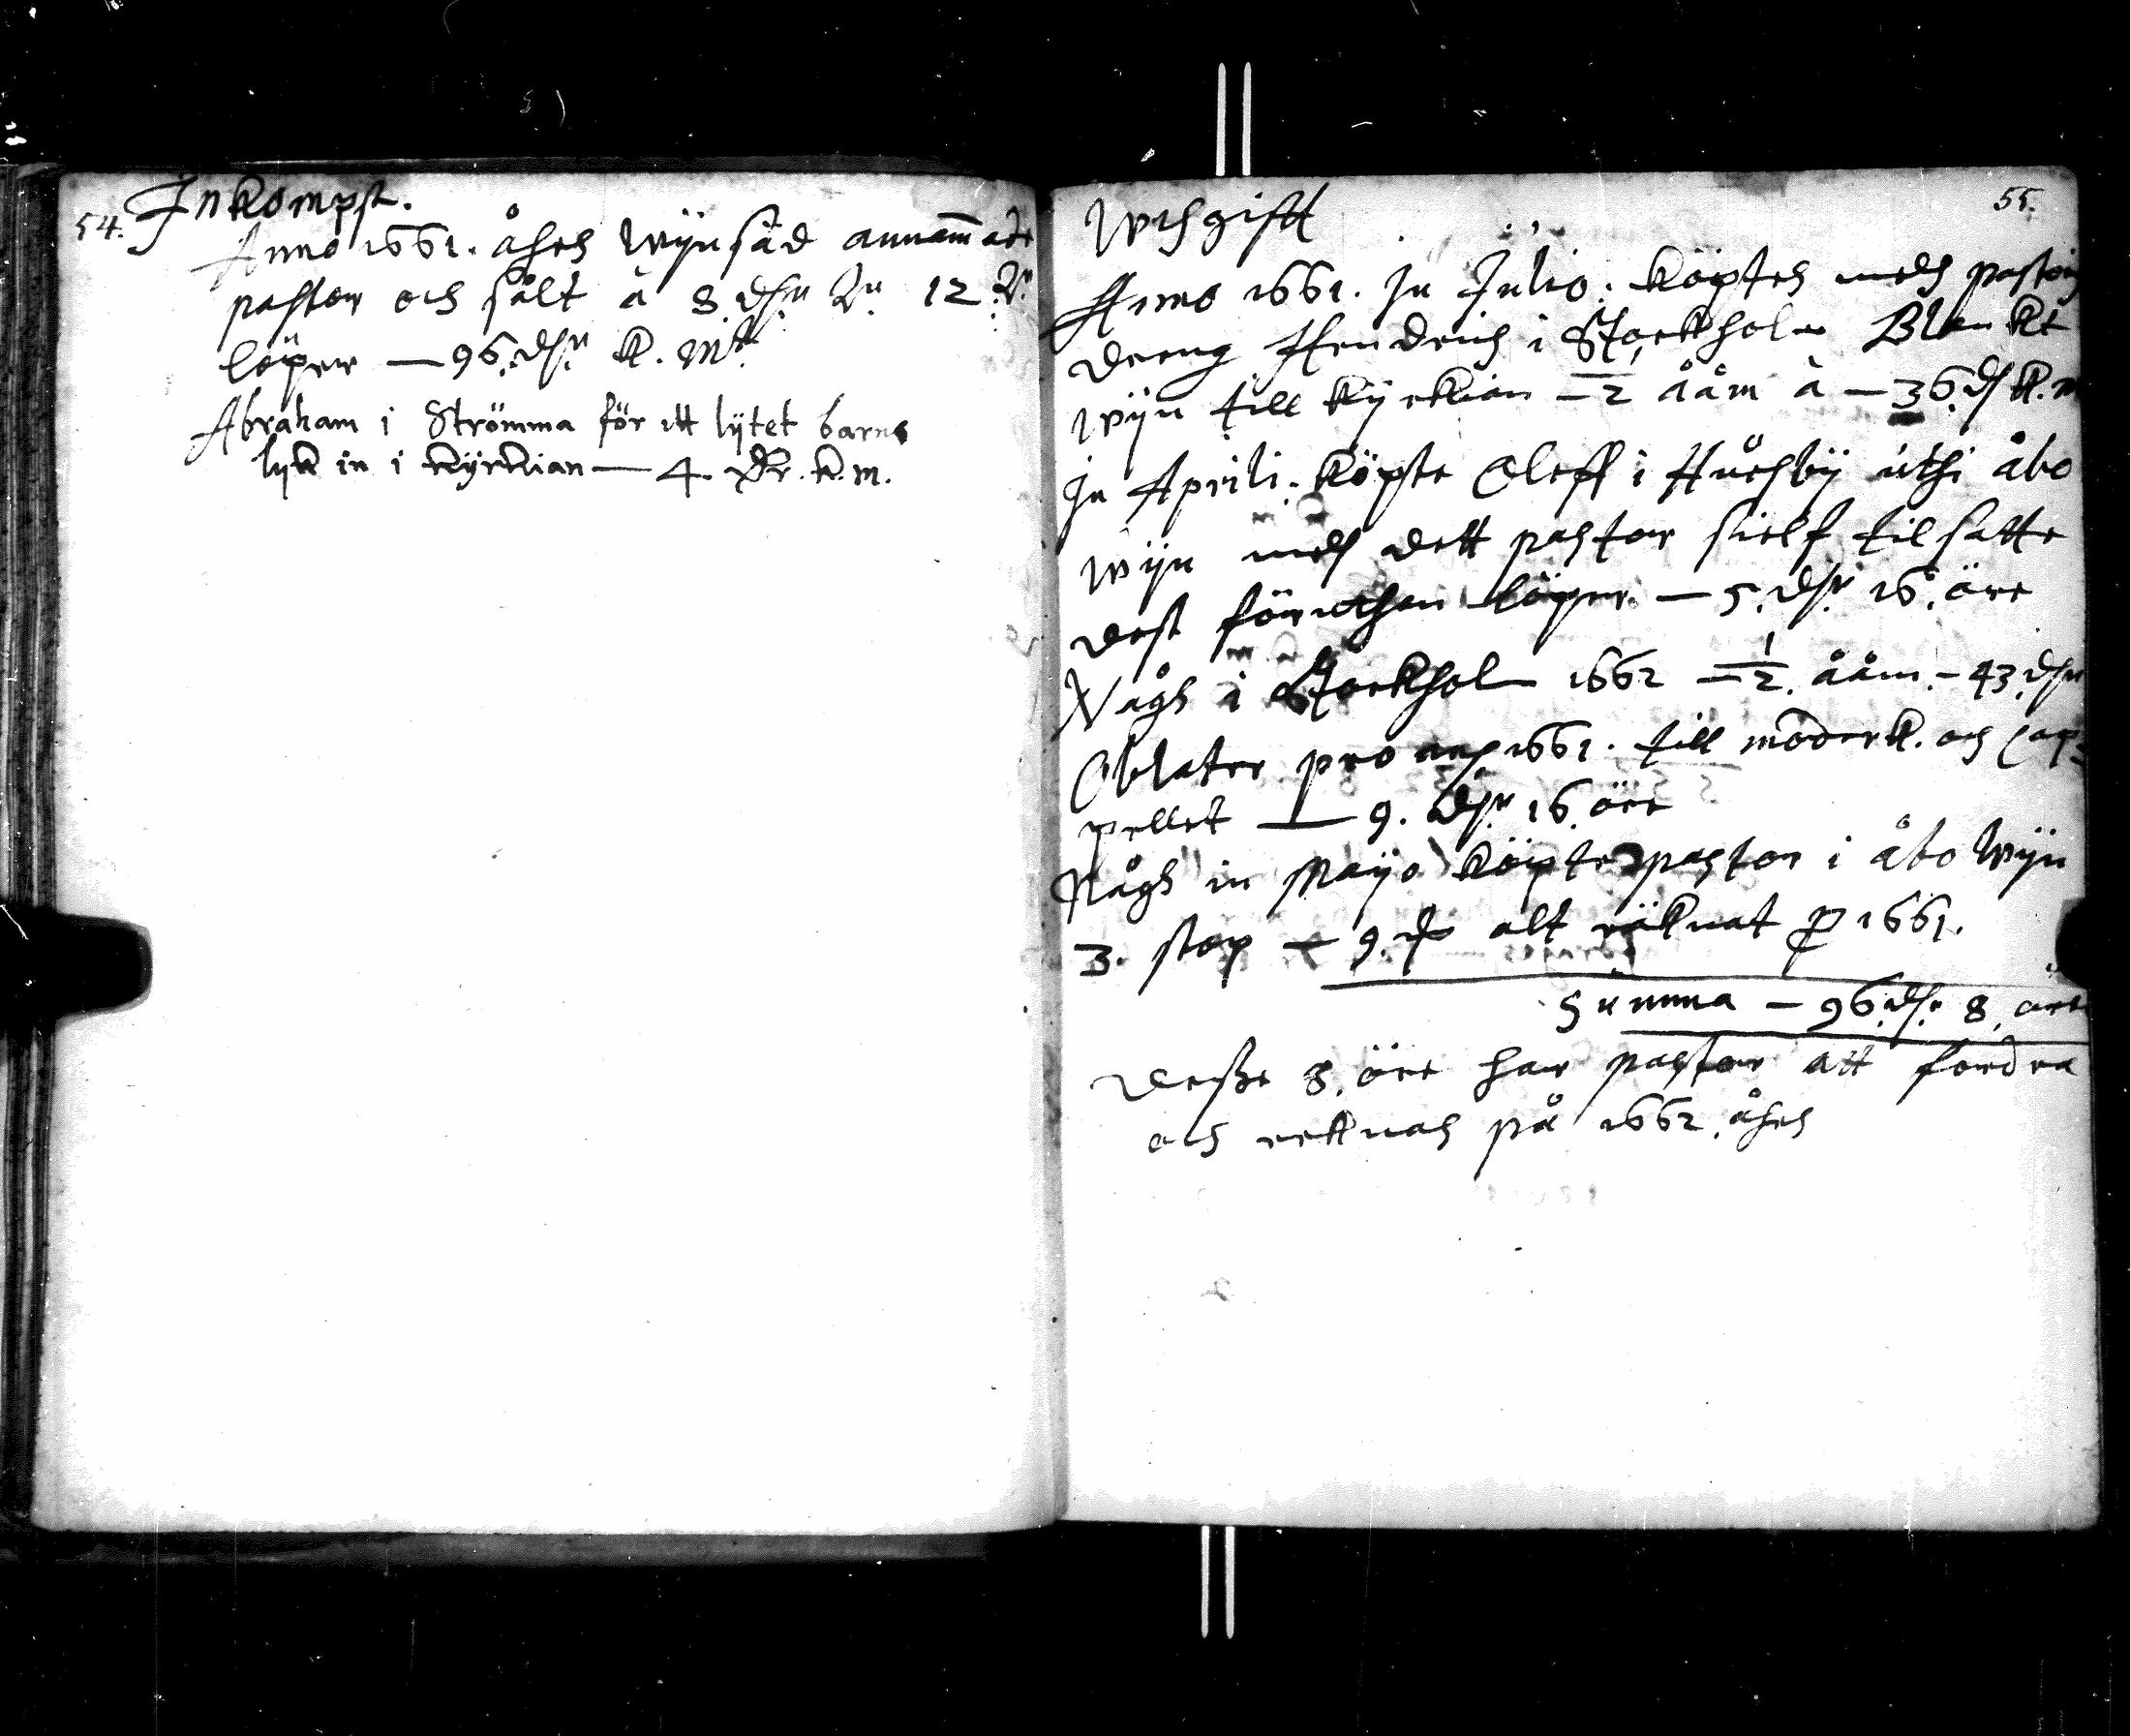 54. Inkompst.
Anno 1661. åhrs Wijnsäd annammade
pastor och sålt à 8 dlr 12
löper — 96 dlr k. Mt
Abraham i Strömma för itt lijtet barns
lyk in i kyrkian — 4. dr. k. m.
55.
Uthgifft
Anno 1661. In Julio. köptes medh pastoris
dreng Hendrich i Stockholm Blankt
wijn till kyrkian — 1/2 ååm à — 36 d. k. m
In Aprili. köpte Oleff i Huusby uthi åbo
wijn medh dett pastor sielf tilsatte
dest föruthan löper. — 5. dlr 16. öre
Någh i Stockholm 1662 — 1/2. ååm. — 43. dlr
Oblater pro 1661. till moderk. och Cap-
pellet — 9. dlr 16. öre
Någh in Mayo köpte pastor i åbo Wijn
3. stop — 9. d alt räknat p 1661.
Summa — 96 dlr 8. öre
Desse 8. öre har pastor att fordra
och reknas på 1662. åhrs